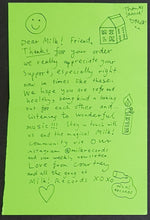 Thanks
Dear Milk! Friend,
Thanks for your order
we really appreciate your
support, especially right
now in times like these
We hope you are safe and
healthy, being kind + looking
out for each other and
listening to Wonderful
music!!! Stay in touch with
us and the magical Milk!
community via our
Instagram @milkrecords
and our weekly newsletter
Love from Courtney
and all the gang at
Milk! Records XOXO
MILK!
RECORDS